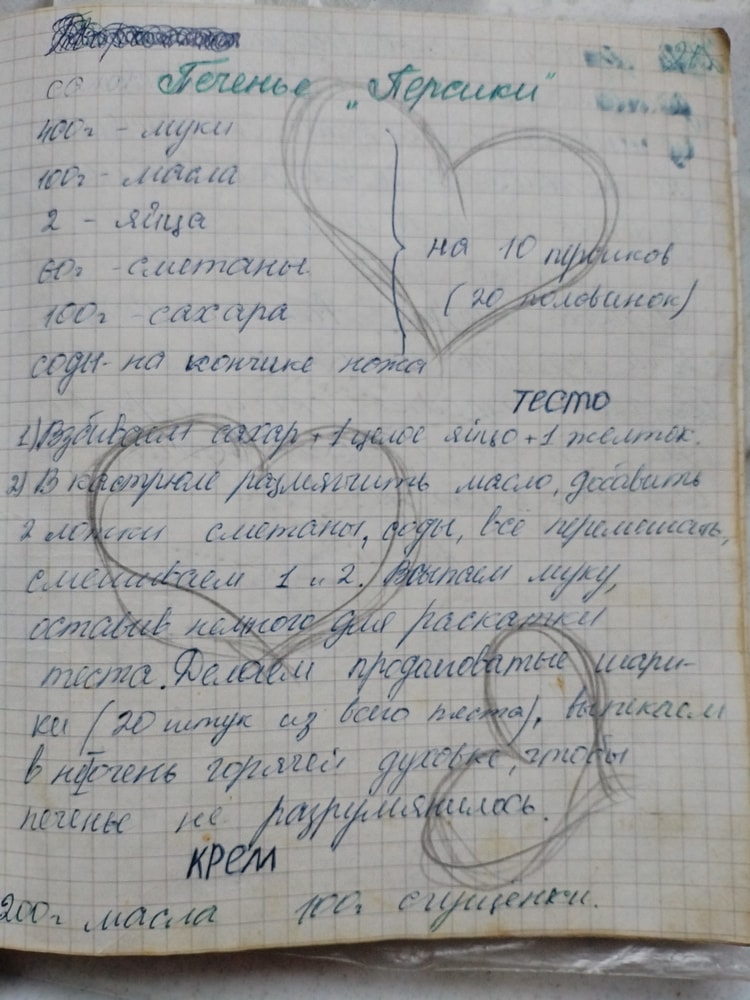 Печенье „Персики"
400г - муки
100г - масла
2 - яйца
60г - сметаны
100г - сахара
соды - на кончике ножа
на 10 персиков
(20 половинок)
тесто
1) Взбиваем сахар + 1 целое яйцо + 1 желток.
2) В кастрюле размягчить масло, добавить
2 ложки сметаны, соды, всё перемешать,
смешиваем 1 и 2. Всыпаем муку,
оставив немного для раскатки
теста. Делаем продолговатые шари-
ки (20 штук из всего теста), выпекаем
в не очень горячей духовке, чтобы
печенье не разрумянилось.
крем
200г масла 100г сгущёнки.